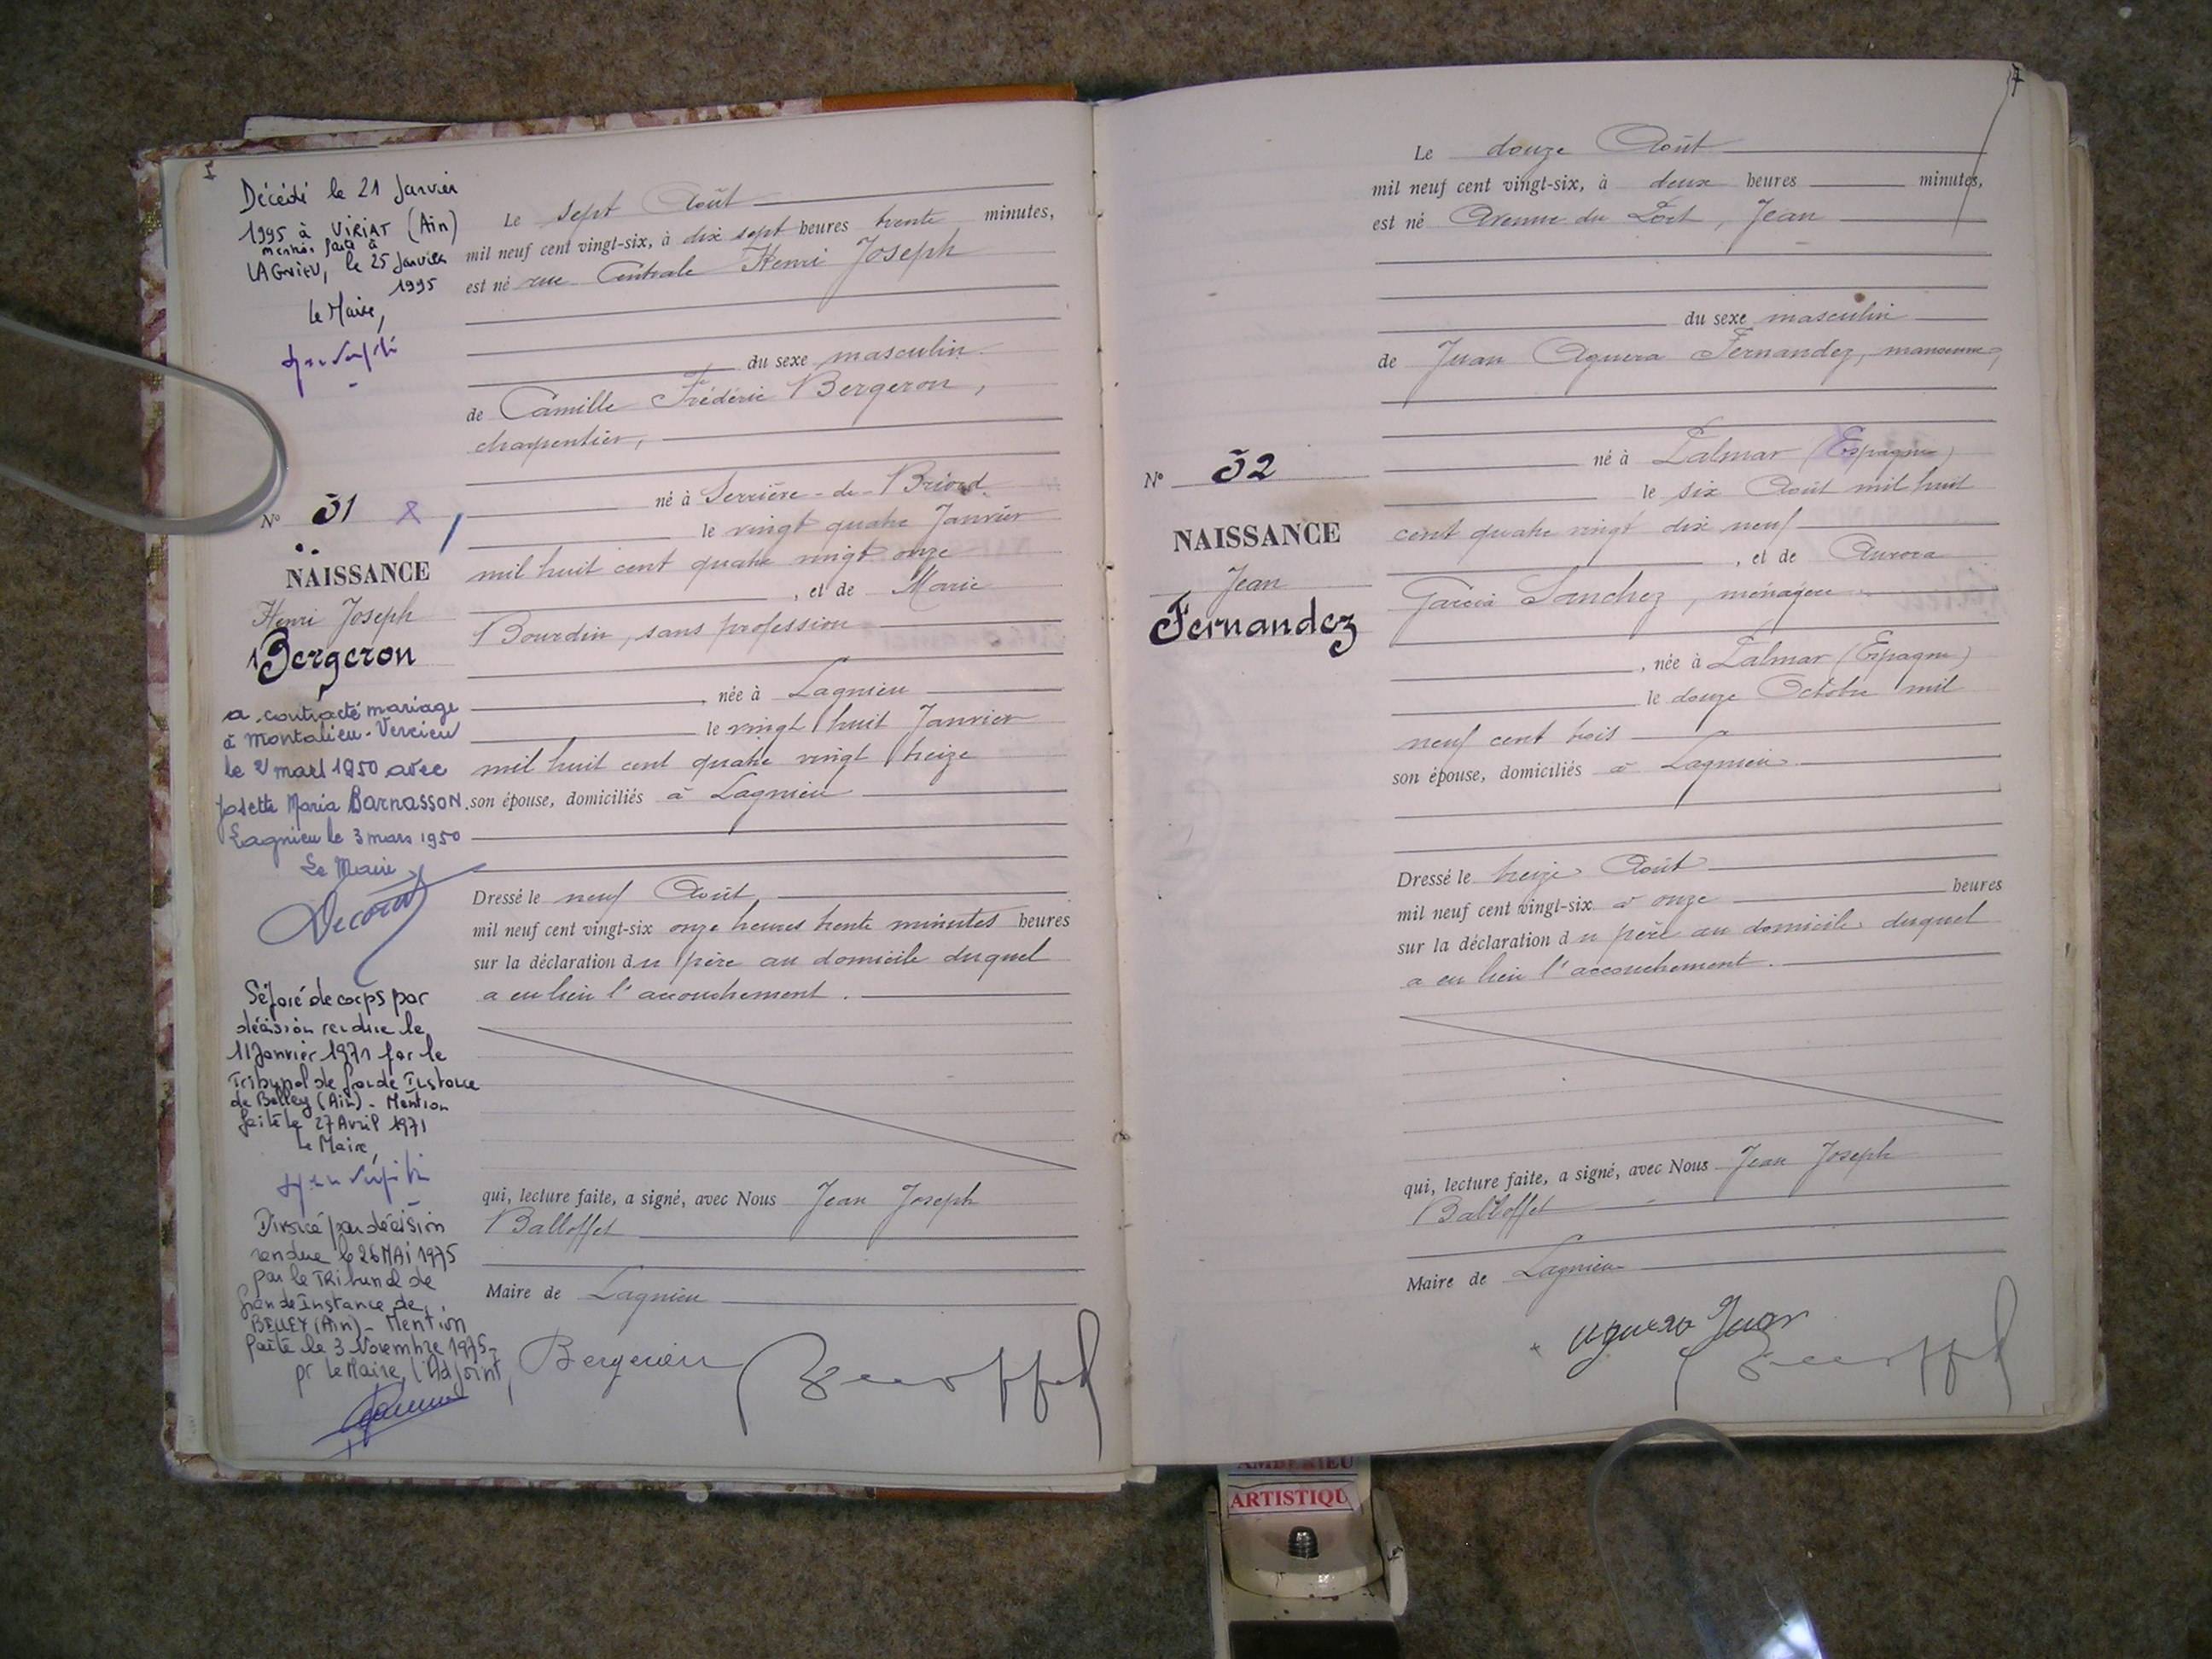 Décédé le 21 Janvier
1995 à VIRIAT (Ain)
mention faite à
LAGNIEU, le 25 Janvier
1995
le Maire,
N° 31
NAISSANCE
Henri Joseph
Bergeron
a contracté mariage
à Montalieu-Vercieu
le 2 mars 1950 avec
Josette Maria Barnasson.
Lagnieu le 3 mars 1950
Le Maire
Séparé de corps par
décision rendue le
11 Janvier 1971 par le
Tribunal de Grande Instance
de Belley (Ain) - Mention
faite le 27 Avril 1971
Le Maire,
Divorcé par décision
rendue le 26 MAI 1975
par le Tribunal de
Grande Instance de
BELLEY (Ain) - Mention
faite le 3 Novembre 1975
pr le Maire, l'Adjoint,
Le sept Août
mil neuf cent vingt-six, à dix sept heures trente minutes,
est né rue Centrale Henri Joseph
du sexe masculin
de Camille Frédéric Bergeron,
charpentier,
né à Serrière-de-Briord
le vingt quatre Janvier
mil huit cent quatre vingt onze
, et de Marie
Bourdin, sans profession
, née à Lagnieu
le vingt huit Janvier
mil huit cent quatre vingt treize
son épouse, domiciliés à Lagnieu
Dressé le neuf Août
mil neuf cent vingt-six onze heures trente minutes heures
sur la déclaration du père au domicile duquel
a eu lieu l'accouchement.
qui, lecture faite, a signé, avec Nous Jean Joseph
Balloffet
Maire de Lagnieu
Bergeron Balloffet
7
Le douze Août
mil neuf cent vingt-six, à deux heures minutes,
est né Avenue du Port, Jean
du sexe masculin
de Juan Aguera Fernandez, manoeuvre,
N° 32
NAISSANCE
Jean
Fernandez
né à Palmar (Espagne)
le six Août mil huit
cent quatre vingt dix neuf
, et de Aurora
Garcia Sanchez, ménagère
, née à Palmar (Espagne)
le douze Octobre mil
neuf cent trois
son épouse, domiciliés à Lagnieu
Dressé le treize Août
mil neuf cent vingt-six à onze heures
sur la déclaration du père au domicile duquel
a eu lieu l'accouchement.
qui, lecture faite, a signé, avec Nous Jean Joseph
Balloffet
Maire de Lagnieu
Aguera Juan
Balloffet
AMBERIEU
ARTISTIQU